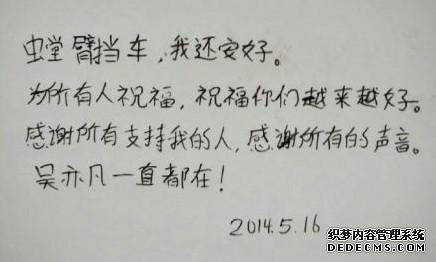 虫堂臂挡车，我还安好。
为所有人祝福，祝福你们越来越好。
感谢所有支持我的人，感谢所有的声音。
吴亦凡一直都在！
2014.5.16
织梦内容管理系统
DEDECMS.COM